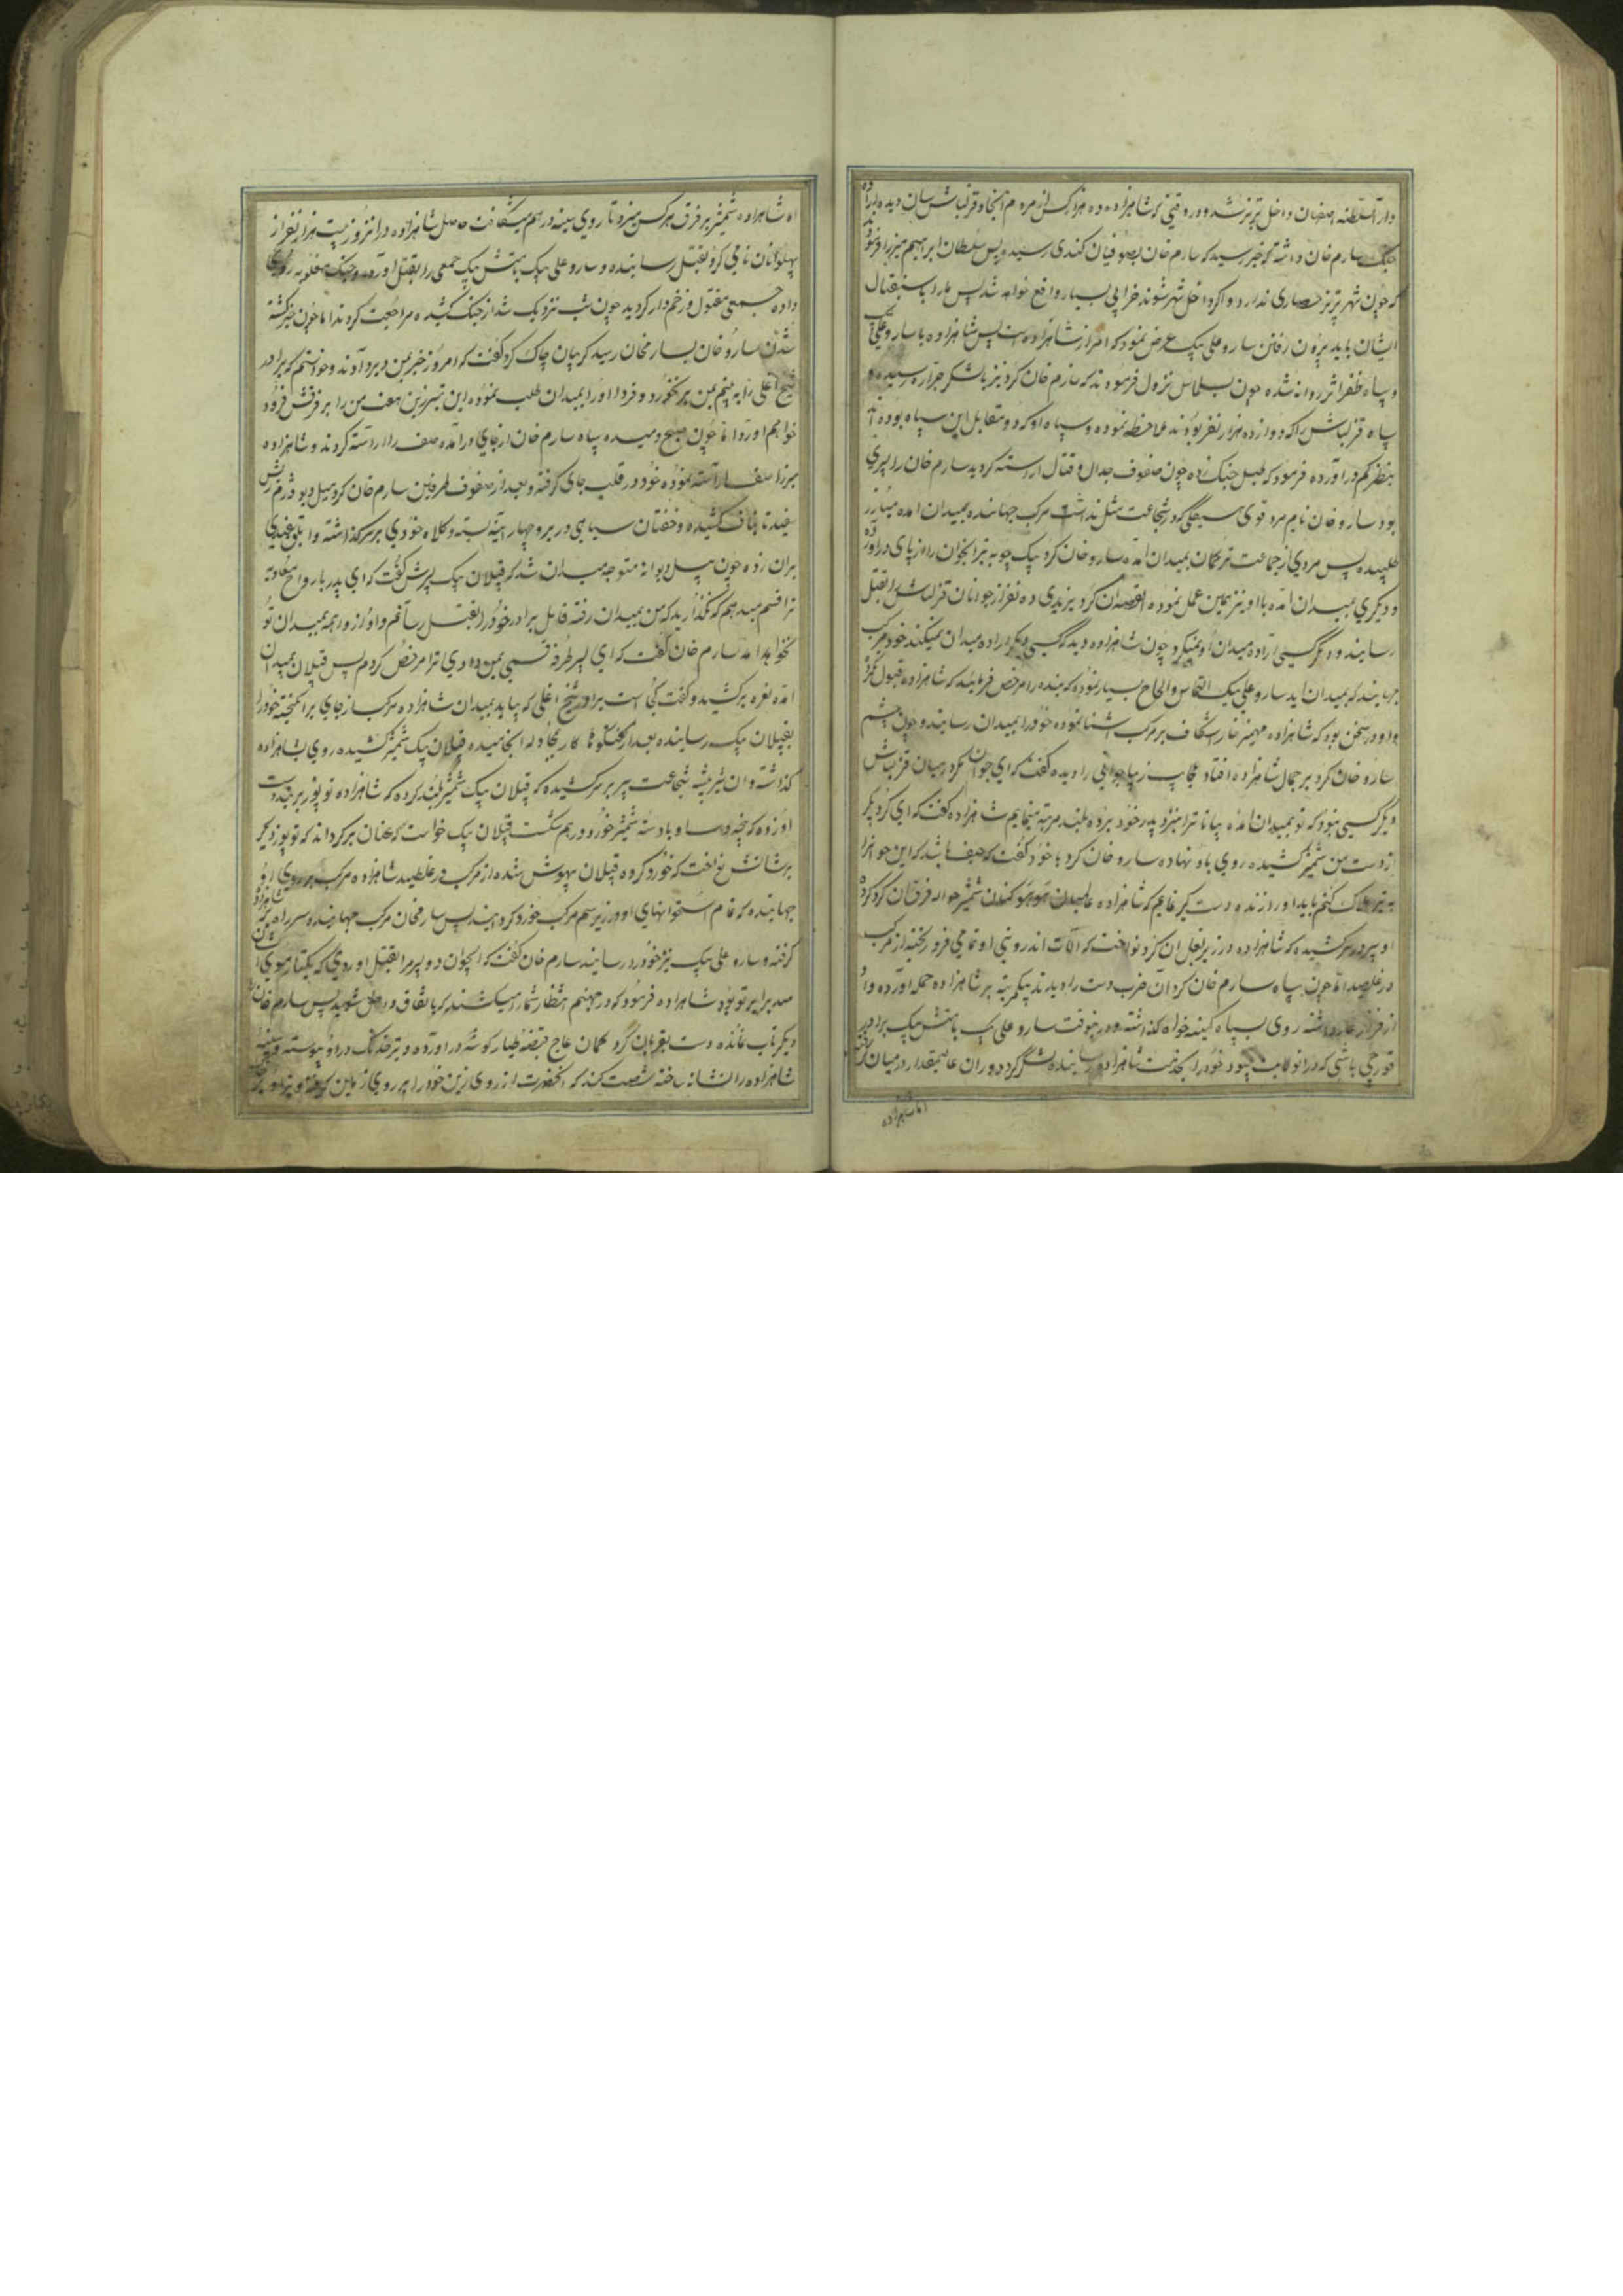 دار السلطنه اصفهان داخل تبریز شد و در وقتی که شاهزاده ده هزار کس از مردم آنجا و قزلباش سان دیده اراده
جنگ سارم خان داشته که خبر رسید که سارم خان بصوفیان کندی رسید پس سلطان ابراهیم میرزا فرمود
که چون شهر تبریز حصاری ندارد و اگر داخل شهر شوند خرابی بسیار واقع خواهد شد پس ما را باستقبال
ایشان باید بیرون رفتن سارو علی بیک عرض نمود که امر از شاهزاده است پس شاهزاده با سارو علی بیک
و سپاه ظفر اثر روانه شده چون بسلماس نزول فرمودند که سارم خان کرد نیز با لشکر جرار رسیده و
سپاه قزلباش را که دوازده هزار نفر بودند ملاحظه نموده و سپاه او که دو مقابل این سپاه بوده اند
بنظر کم در آورده فرمود که طبل جنگ زده چون صفوف جدال و قتال آراسته گردید سارم خان را پسری
بود سارو خان نام مرد قوی هیکلی که در شجاعت مثل نداشت مرکب جهانده بمیدان آمده مبارز
طلبیده پس مردی از جماعت ترکمان بمیدان آمده سارو خان کرد بیک چوبه تیر آنجوان را از پای در آورده
و دیگری بمیدان آمده با او نیز همین عمل نموده القصه آن کرد یزیدی ده نفر از جوانان قزلباش را بقتل
رسانید و دیگر کسی اراده میدان او نمیکرد چون شاهزاده دید که کسی دیگر اراده میدان نمیکند خود مرکب
جهانید که بمیدان آید سارو علی بیک التماس و الحاح بسیار نموده که بنده را مرخص فرمایند که شاهزاده قبول نکرد
و او در سخن بود که شاهزاده مهمیز خارا شکاف بر مرکب آشنا نموده خود را بمیدان رسانید و چون چشم
سارو خان کرد بر جمال شاهزاده افتاد عجایب زیبا جوانی را دیده گفت که ای جوان مگر در میان قزلباش
دیگر کسی نبود که تو بمیدان آمده بیا تا ترا بنزد پدر خود برده بلند مرتبه نمایم شاهزاده گفت که ای کرد پدر
از دست من شمشیر کشیده روی باو نهاده سارو خان کرد با خود گفت که حیف باشد که این جوانرا
به تیر هلاک کنم باید او را زنده دستگیر نمایم که شاهزاده شمشیر حواله فرق آن کرد کرده
او سپر در سر کشیده که شاهزاده در زیر بغل آن کرد نواخت که آلات اندرونی او تمامی فرو ریخته از مرکب
در غلطید اما چون سپاه سارم خان کرد آن ضرب دست را دیدند بیکمرتبه بر شاهزاده حمله آورده و او
از فرار عار داشته روی بسپاه کینه خواه گذاشته و در اینوقت سارو علی بیک با تمش بیک برادر
قورچی باشی که در انولایت میبود خود را بخدمت شاهزاده رسانیده لشکر کرد دوران عالیمقدار در میان گرفته
اما شاهزاده
اما شاهزاده شمشیر بر فرق هر کس میزد تا روی سینه در هم میشکافت حاصل شاهزاده در انروز بیست هزار نفر از
پهلوانان نامی کرد بقتل رسانیده و سارو علی بیک با تمش بیک جمعی را بقتل آورده و جنگ مغلوبه
داده جمعی مقتول و زخم دار گردید چون شب نزدیک شد از جنگ کشیده مراجعت کردند اما چون خبر کشته
شدن سارو خان بسارمخان رسید گریبان چاک کرد گفت که امروز خبر بمن دیر دادند و خواستم که برادر
شیخ اغلی را به بینم بمن بر نخورد و فردا او را بمیدان طلب نموده این تبرزین هفت من را بر فرقش فرود
خواهم آورد اما چون صبح دمیده سپاه سارم خان از جای در آمده صف را آراسته کردند و شاهزاده
میرزا صف آراسته نموده خود در قلب جای گرفته و بعد از صفوف طرفین سارم خان کرد میل دیو
سفید تا بناف کشیده و خفتان سیاهی در بر و چهار آینه بسته و کلاه خودی بر سر گذاشته و ابلق سفیدی
بران زده چون پیل دیوانه متوجه میدان شد که قپلان بیک پسرش گفت که ای پدر بارواح معاویه
ترا قسم میدهم که بگذارید که من بمیدان رفته قاتل برادر خود را بقتل رسانم و او از واهمه بمیدان تو
نخواهد آمد سارم خان گفت که ای پسر طرفه قسمی بمن دادی ترا مرخص کردم پس قپلان بمیدان
آمده نعره برکشید و گفت کجا است برادر شیخ اغلی که بیاید بمیدان شاهزاده مرکب از جای بر انگیخته خود را
بقپلان بیک رسانیده بعد از گفتگوها کار بمجادله انجامیده قپلان بیک شمشیر کشیده روی بشاهزاده
گذاشته و ان شیر بیشه شجاعت سپر بر سر کشیده که قپلان بیک شمشیر بلند کرده که شاهزاده توپوز بر بند دست
او زده که پنجه دست او با دسته شمشیر خورد و در هم شکست قپلان بیک خواست که عنان بر گرداند که توپوز دیگر
بر شانه اش نواخت که خورد کرده قپلان بیهوش شده از مرکب در غلطید شاهزاده مرکب بر روی او
جهانیده که تمام استخوانهای او در زیر سم مرکب خورد گردانید پس سارمخان مرکب جهانیده سر راه بر شاهزاده
گرفته و سارو علی بیک نیز خود را رسانید سارم خان گفت که ایجوان دو پسر مرا بقتل آوردی که یکتار موی ایشان
صد برابر تو بود شاهزاده فرمود که در جهنم انتظار شما را میکشند که باتفاق داخل شوید پس سارم خان را
دیگر تاب نمانده دست بقربان کرد کمان عاج قبضه طیار گوشه در آورده و تیر خدنگ در او پیوسته و سینه
شاهزاده را نشانه ساخته شصت کند که آنحضرت از روی زین خود را بر روی زمین گرفته